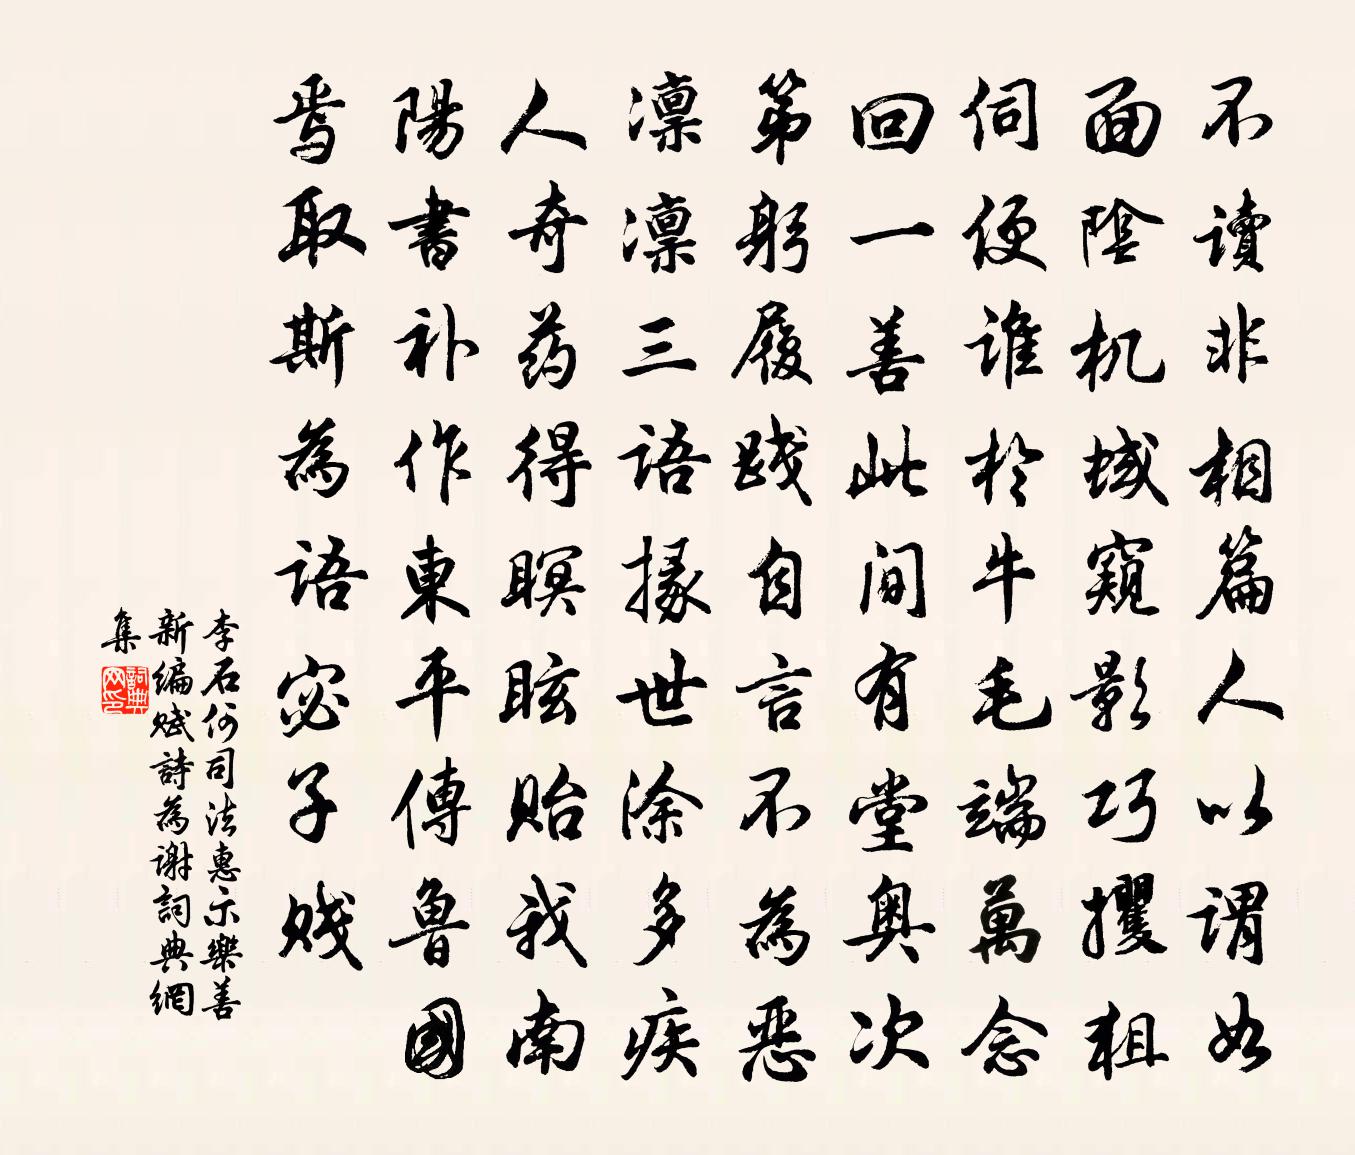 不讀非相篇人以謂如
面陰机蜮窺影巧攫狙
伺便誰於牛毛端萬念
回一善此间有堂奥次
第躬履践自言不為恶
凛凛三語掾世涂多疾
人奇药得瞑眩貽我南
陽書补作東平傳魯國
焉取斯為語宓子賤
李石何司法惠示樂善
新編賦詩為謝詞典網
集
詞典網印